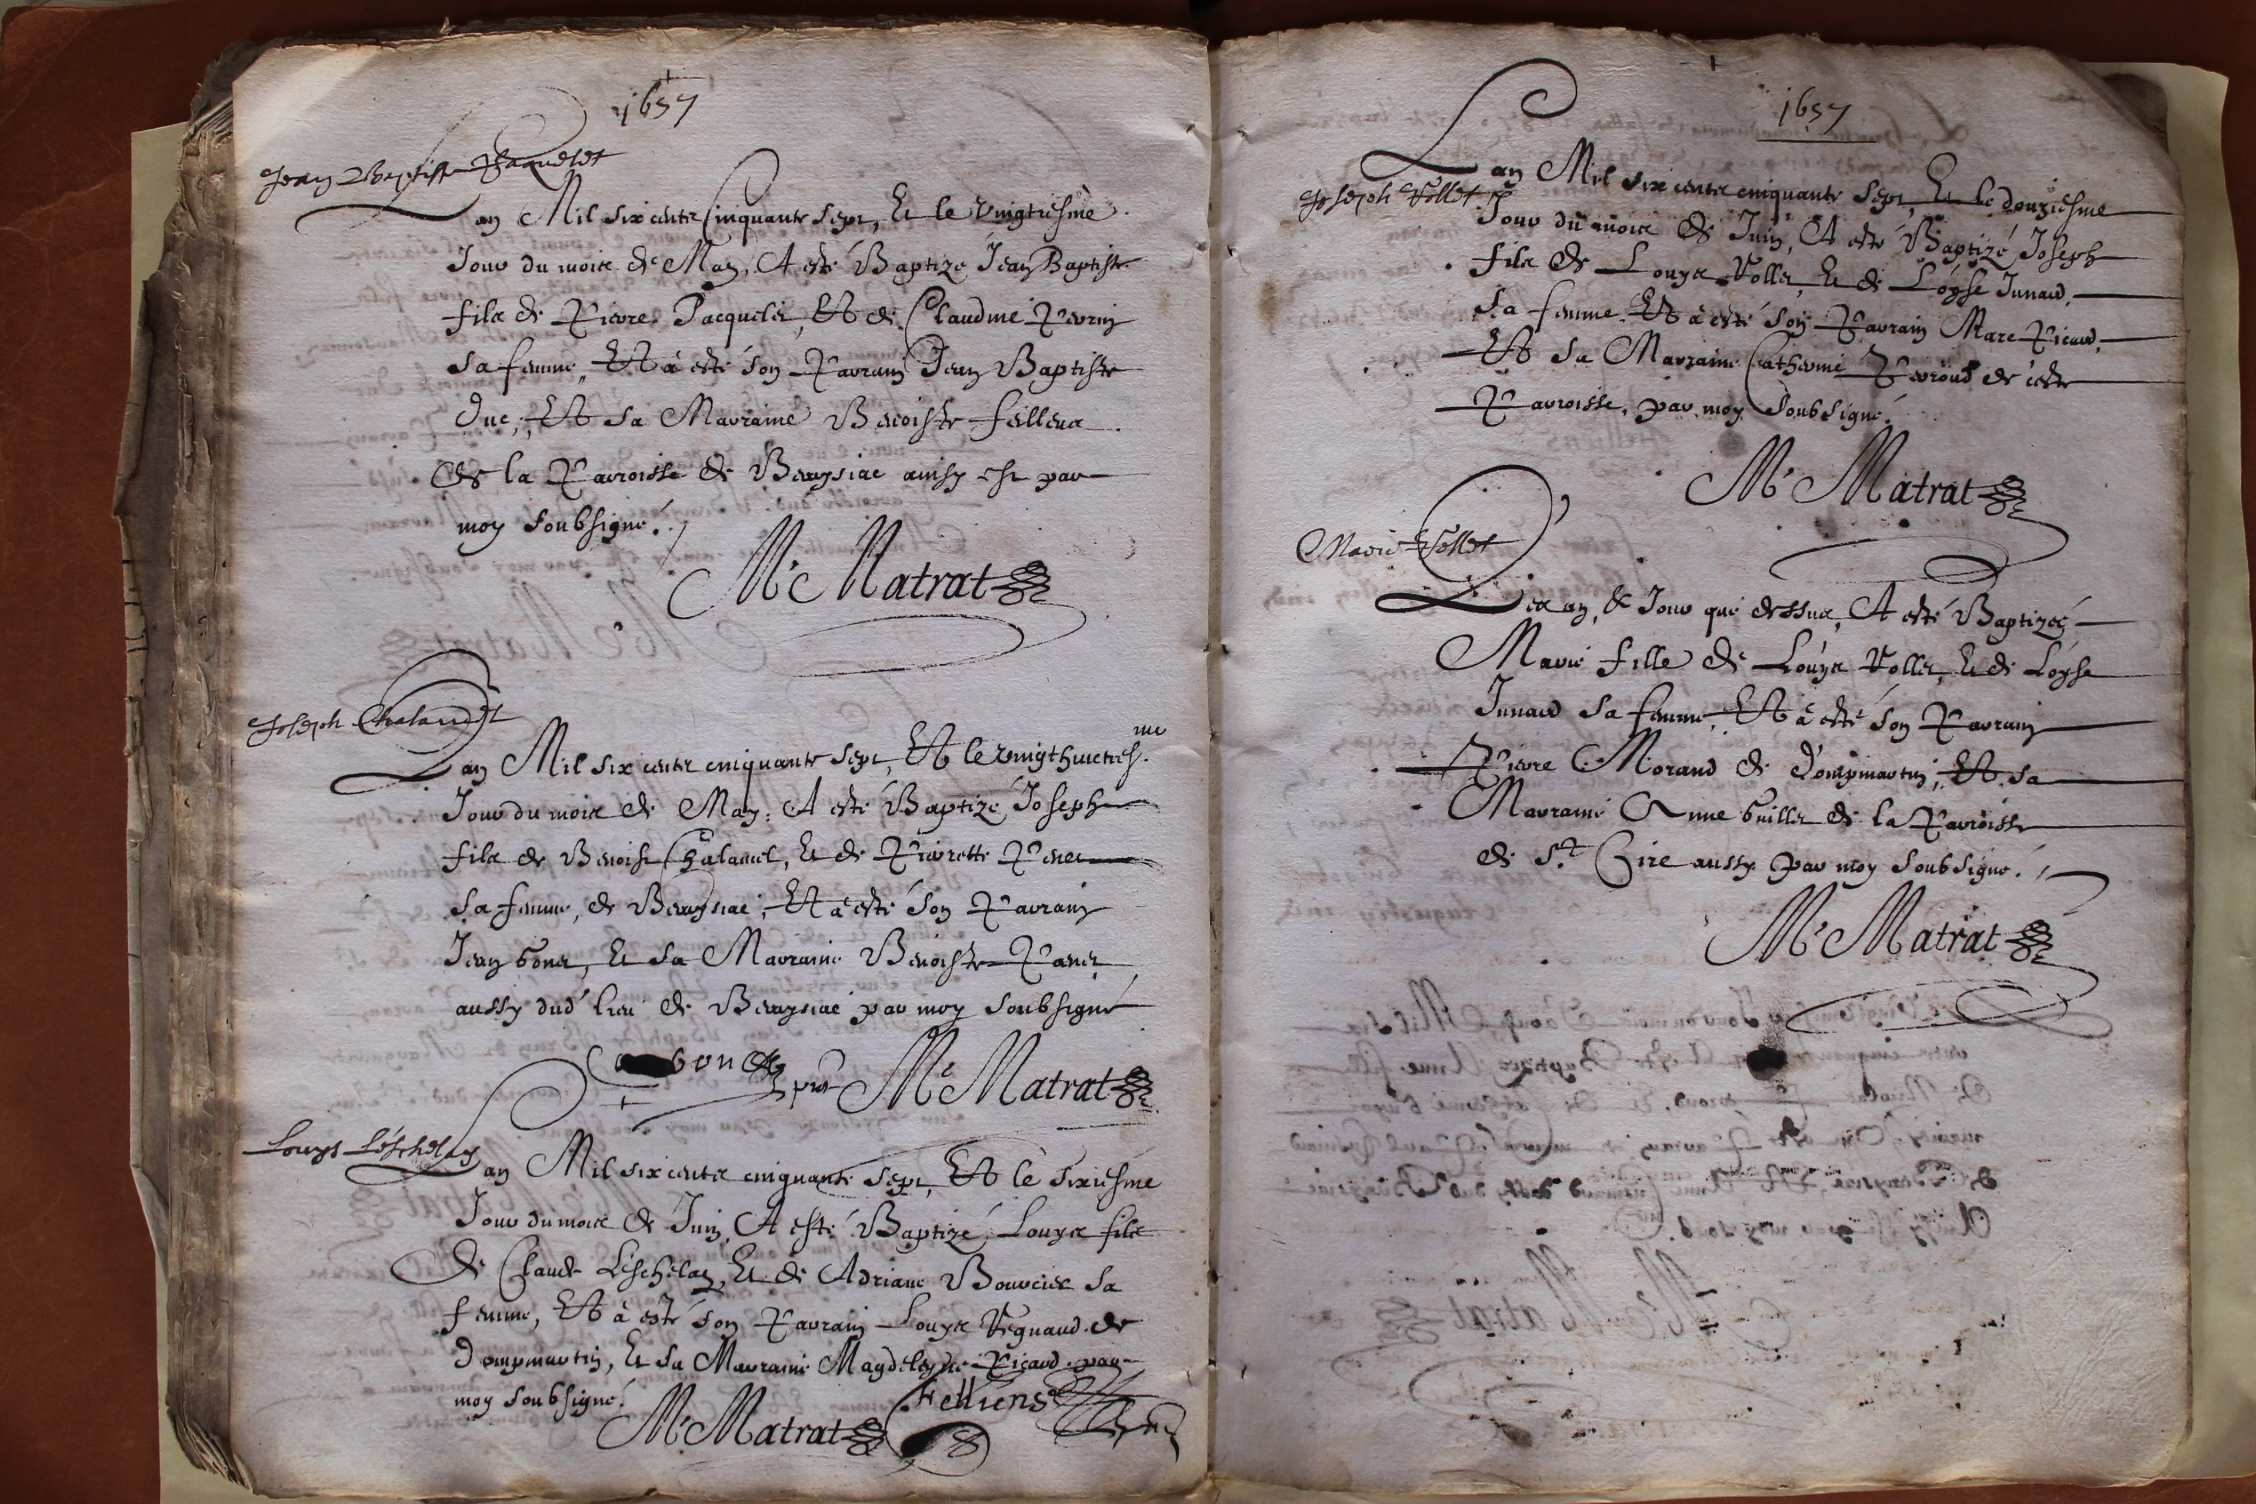 1657
Jean Baptiste Pacquelet
Lan Mil six cents Cinquante sept, Et le vingtiesme
Jour du mois de May, A esté Baptizé Jean Baptiste
fils de Pierre Pacquelet, Et de Claudine Perrin
sa femme, Et a esté son Parrain Jean Baptiste
Duc, Et sa Marraine Benoiste
de la Parroisse de Bereysiac ainsy est par
moy soubsigné.
Mr Matrat
Joseph Chalandet
Lan Mil six cents cinquante sept, Et le vingthuictiesme
Jour du mois de May, A esté Baptizé Joseph
fils de Benoist Chalamel, Et de Pierrette
sa femme, de Bereysiac, Et a esté son Parrain
Jean Gonet, Et sa Marraine Benoiste
aussy dud lieu de Bereysiac par moy soubsigné
Gonet
Mr Matrat
Louys Léschelay
Lan Mil six cents cinquante sept, Et le sixiesme
Jour du mois de Juin, A esté Baptizé Louys fils
de Claude Léschelay, Et de Adriane Bouvier sa
femme, Et a esté son Parrain Louys Regnaud de
Dompmartin, Et sa Marraine Magdeleyne Picard par
moy soubsigné.
Mr Matrat
1657
Joseph Vollet
Lan Mil six cents cinquante sept, Et le douziesme
Jour du mois de Juin, A esté Baptizé Joseph
fils de Louys Vollet, Et de Loyse Junard
sa femme, Et a esté son Parrain Marc Picard,
Et sa Marraine Catherine Perroud de ceste
Parroisse, par moy soubsigné.
Mr Matrat
Marie Vollet
Les an, & Jour que dessus, A esté Baptizée
Marie fille de Louys Vollet, Et de Loyse
Junard sa femme, Et a esté son Parrain
Pierre Morand de Dompmartin, Et sa
Marraine Anne Guillet de la Parroisse
de St. Cire aussy par moy soubsigné.
Mr Matrat